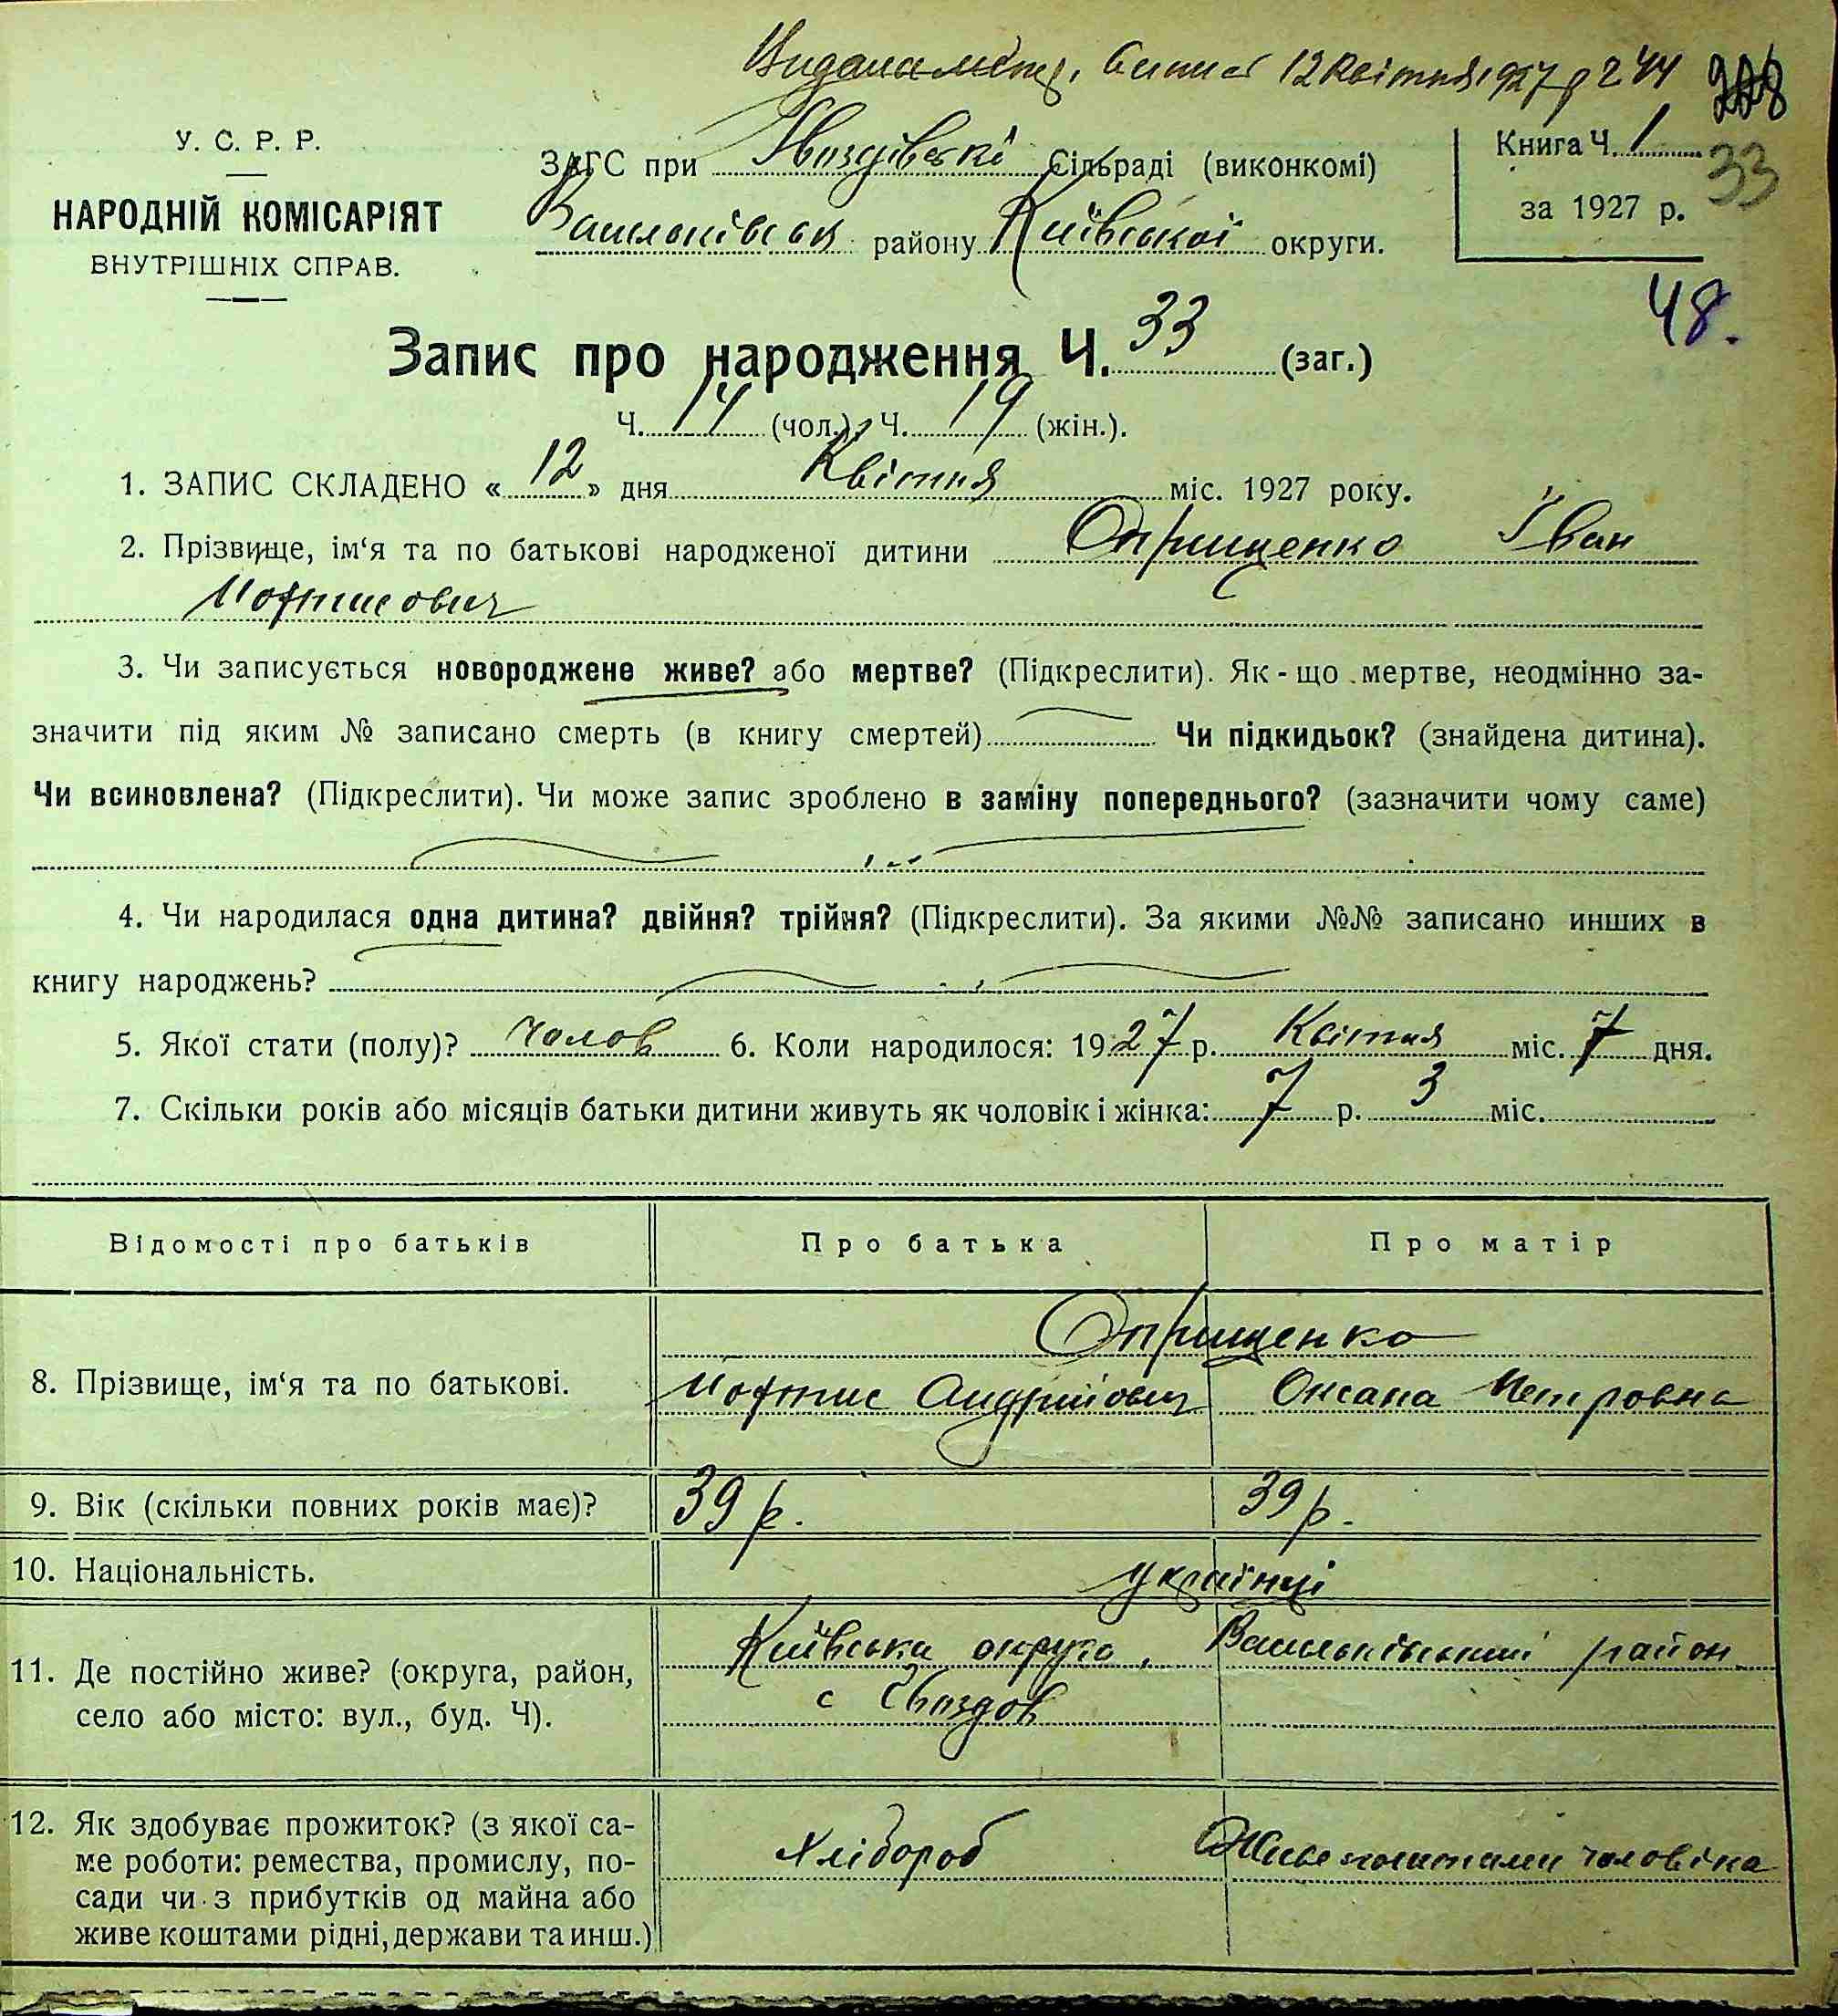 Видана метр. виписъ 12 Квітня 1927 р 244
У. С. Р. Р.
НАРОДНІЙ КОМІСАРІЯТ
ВНУТРІШНІХ СПРАВ.
ЗАГС при Гвоздівські Сільраді (виконкомі)
Васильківськ району Київської округи.
Книга Ч. 1
за 1927 р.
33
48.
Запис про народження Ч. 33 (заг.)
Ч. 14 (чол.), Ч. 19 (жін.).
1. ЗАПИС СКЛАДЕНО « 12 » дня Квітня міс. 1927 року.
2. Прізвище, ім‘я та по батькові народженої дитини Оприщенко Іван
Мофтисович
3. Чи записується новороджене живе? або мертве? (Підкреслити). Як-що мертве, неодмінно за-
значити під яким № записано смерть (в книгу смертей) Чи підкидьок? (знайдена дитина).
Чи всиновлена? (Підкреслити). Чи може запис зроблено в заміну попереднього? (зазначити чому саме)
4. Чи народилася одна дитина? двійня? трійня? (Підкреслити). За якими №№ записано инших в
книгу народжень?
5. Якої стати (полу)? Чолов 6. Коли народилося: 1927 р. Квітня міс. 7 дня.
7. Скільки років або місяців батьки дитини живуть як чоловік і жінка: 7 р. 3 міс.
Відомості про батьків Про батька Про матір
Оприщенко
8. Прізвище, ім‘я та по батькові. Мофтис Андрийович Оксана Петровна
9. Вік (скільки повних років має)? 39 р. 39 р.
10. Національність. українці
11. Де постійно живе? (округа, район, Київська округа, Васильківський район
село або місто: вул., буд. Ч). с Гвоздов
12. Як здобуває прожиток? (з якої са-
ме роботи: ремества, промислу, по- Хлібороб Живе коштами чоловіка
сади чи з прибутків од майна або
живе коштами рідні, держави та инш.)